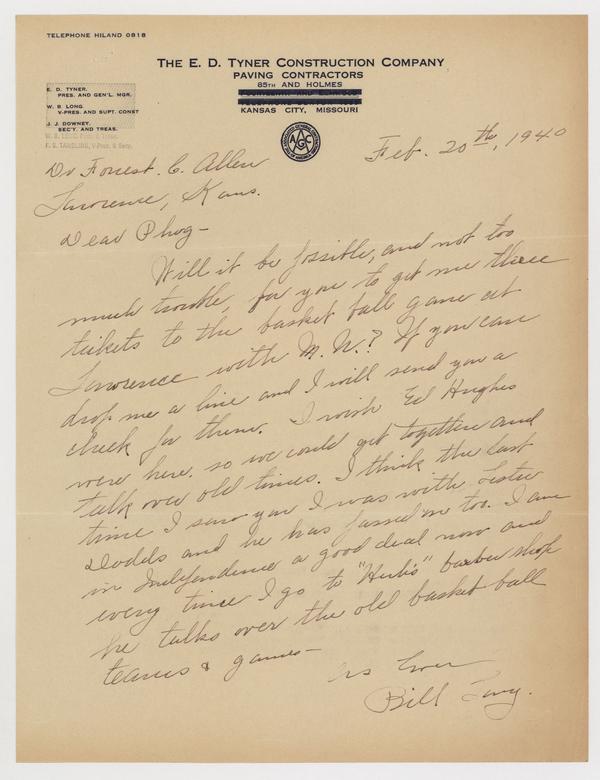 TELEPHONE HILAND 0818
THE E. D. TYNER CONSTRUCTION COMPANY
PAVING CONTRACTORS
85TH AND HOLMES
KANSAS CITY, MISSOURI
E. D. TYNER,
PRES. AND GEN'L. MGR.
W. B. LONG
V-PRES. AND SUPT. CONST
J. J. DOWNEY,
SEC'Y. AND TREAS.
Feb. 20th, 1940
Dr Forrest. C. Allen
Lawrence, Kans.
Dear Phog -
Will it be possible, and not too
much trouble, for you to get me three
tickets to the basket ball game at
Lawrence with M. U.? If you can
drop me a line and I will send you a
check for them. I wish Ed Hughes
were here. so we could get together and
talk over old times. I think the last
time I saw you I was with Lester
Dodds and he has passed on too. I am
in Independence a good deal now and
every time I go to "Herb's" barber shop
he talks over the old basket ball
teams & games -
As Ever
Bill